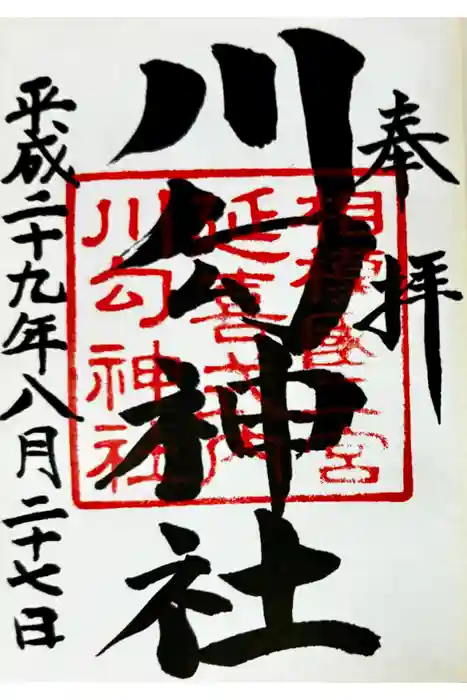 奉拝
川勾神社
相模國二宮
延喜式内
川勾神社
平成二十九年八月二十七日